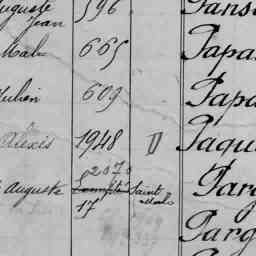 Auguste 596. Pans
Jean
Malo 665 Papa
Julien 609 Papa
Alexis 1948 V Paqu
2070
Auguste Saint Malo Par
17
Parg